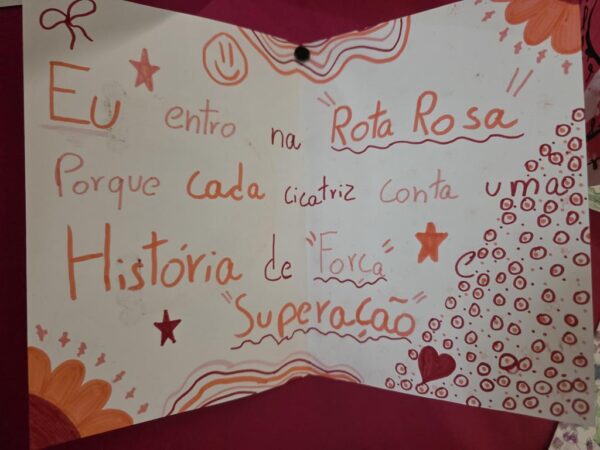 Eu entro na "Rota Rosa"
Porque cada cicatriz conta uma
História de "Força" e
"Superação"